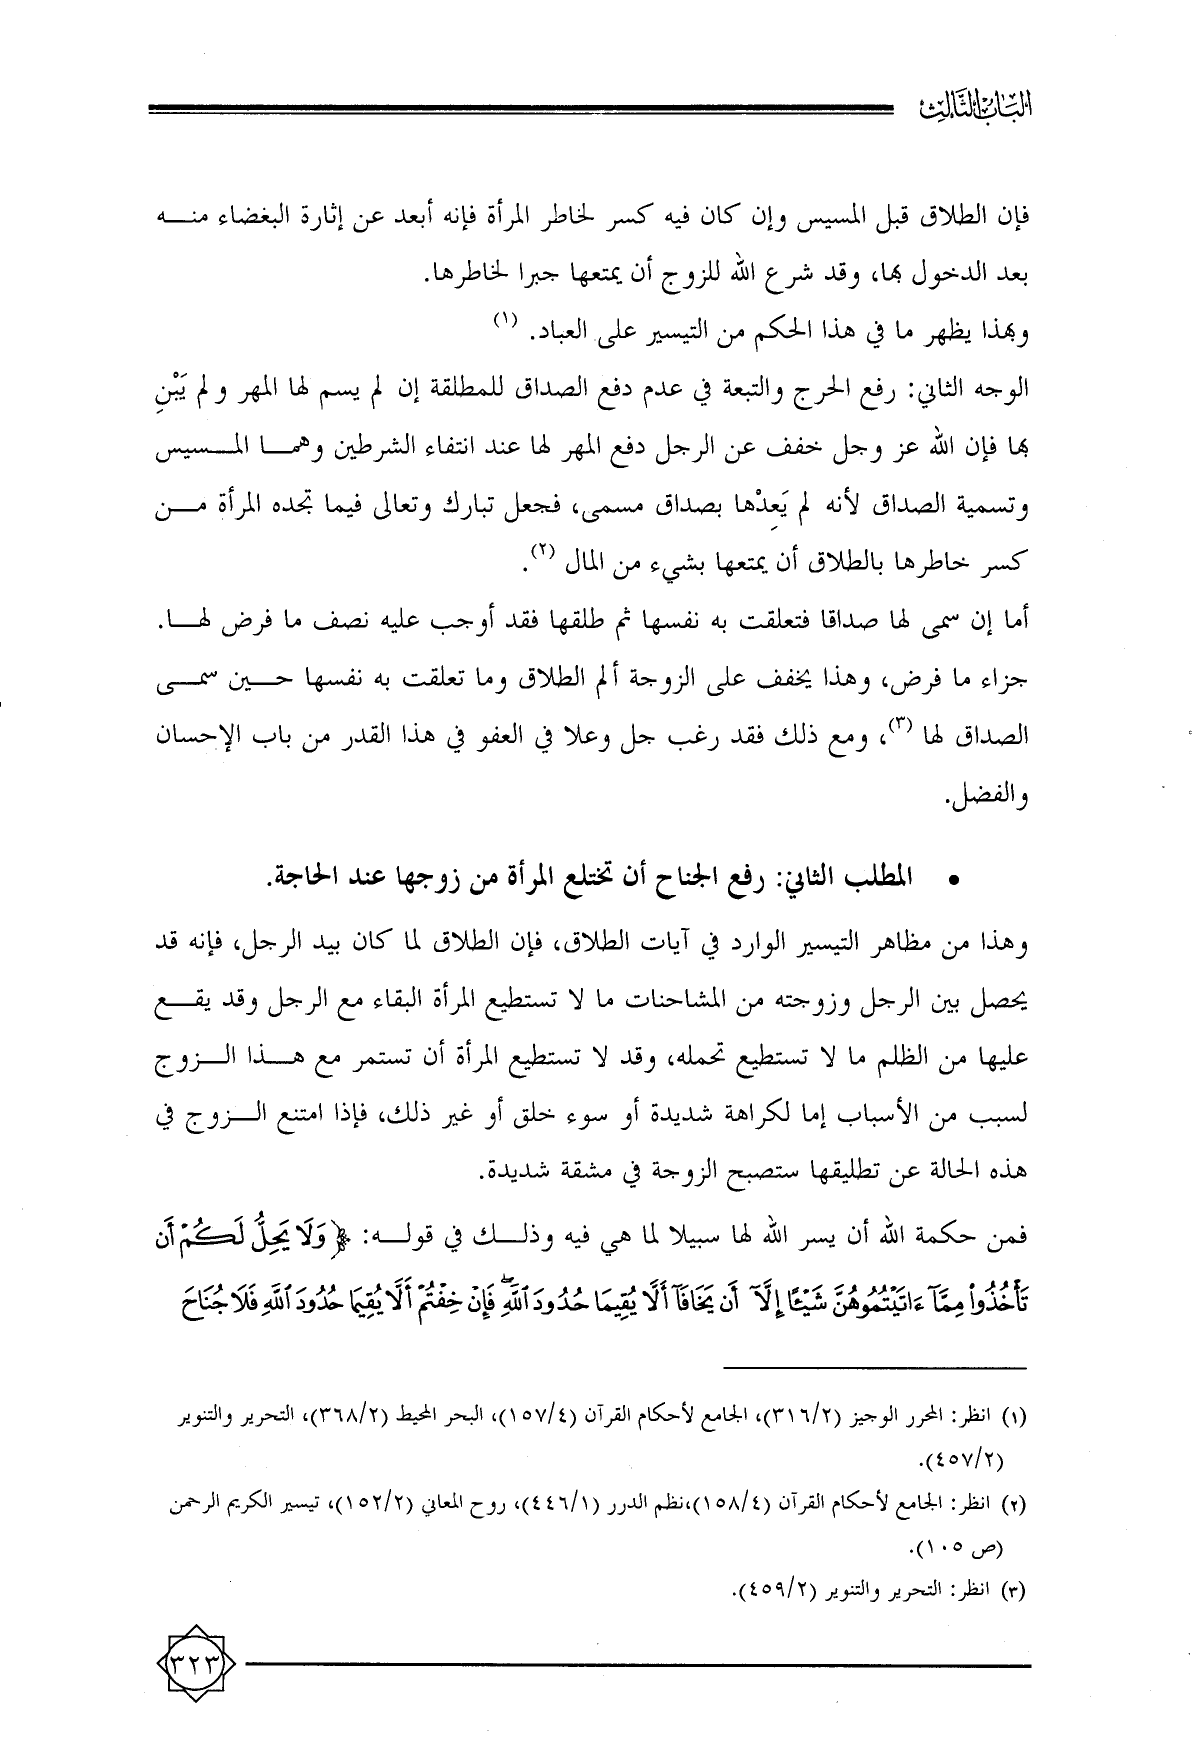 الباب الثالث
فإن الطلاق قبل المسيس وإن كان فيه كسر لخاطر المرأة فإنه أبعد عن إثارة البغضاء منه
بعد الدخول بها، وقد شرع الله للزوج أن يمتعها جبرا لخاطرها.
وبهذا يظهر ما في هذا الحكم من التيسير على العباد. (١)
الوجه الثاني: رفع الحرج والتبعة في عدم دفع الصداق للمطلقة إن لم يسم لها المهر ولم يَبْنِ
بها فإن الله عز وجل خفف عن الرجل دفع المهر لها عند انتفاء الشرطين وهما المسيس
وتسمية الصداق لأنه لم يَعِدْها بصداق مسمى، فجعل تبارك وتعالى فيما تجده المرأة من
كسر خاطرها بالطلاق أن يمتعها بشيء من المال (٢).
أما إن سمى لها صداقا فتعلقت به نفسها ثم طلقها فقد أوجب عليه نصف ما فرض لها.
جزاء ما فرض، وهذا يخفف على الزوجة ألم الطلاق وما تعلقت به نفسها حين سمى
الصداق لها (٣)، ومع ذلك فقد رغب جل وعلا في العفو في هذا القدر من باب الإحسان
والفضل.
• المطلب الثاني: رفع الجناح أن تختلع المرأة من زوجها عند الحاجة.
وهذا من مظاهر التيسير الوارد في آيات الطلاق، فإن الطلاق لما كان بيد الرجل، فإنه قد
يحصل بين الرجل وزوجته من المشاحنات ما لا تستطيع المرأة البقاء مع الرجل وقد يقع
عليها من الظلم ما لا تستطيع تحمله، وقد لا تستطيع المرأة أن تستمر مع هذا الزوج
لسبب من الأسباب إما لكراهة شديدة أو سوء خلق أو غير ذلك، فإذا امتنع الزوج في
هذه الحالة عن تطليقها ستصبح الزوجة في مشقة شديدة.
فمن حكمة الله أن يسر الله لها سبيلا لما هي فيه وذلك في قوله: ﴿وَلَا يَحِلُّ لَكُمْ أَن
تَأْخُذُوا۟ مِمَّآ ءَاتَيْتُمُوهُنَّ شَيْـًٔا إِلَّآ أَن يَخَافَآ أَلَّا يُقِيمَا حُدُودَ ٱللَّهِ ۖ فَإِنْ خِفْتُمْ أَلَّا يُقِيمَا حُدُودَ ٱللَّهِ فَلَا جُنَاحَ
(١) انظر: المحرر الوجيز (٣١٦/٢)، الجامع لأحكام القرآن (١٥٧/٤)، البحر المحيط (٣٦٨/٢)، التحرير والتنوير
(٤٥٧/٢).
(٢) انظر: الجامع لأحكام القرآن (١٥٨/٤)،نظم الدرر (٤٤٦/١)، روح المعاني (١٥٢/٢)، تيسير الكريم الرحمن
(ص ١٠٥).
(٣) انظر: التحرير والتنوير (٤٥٩/٢).
٣٢٣